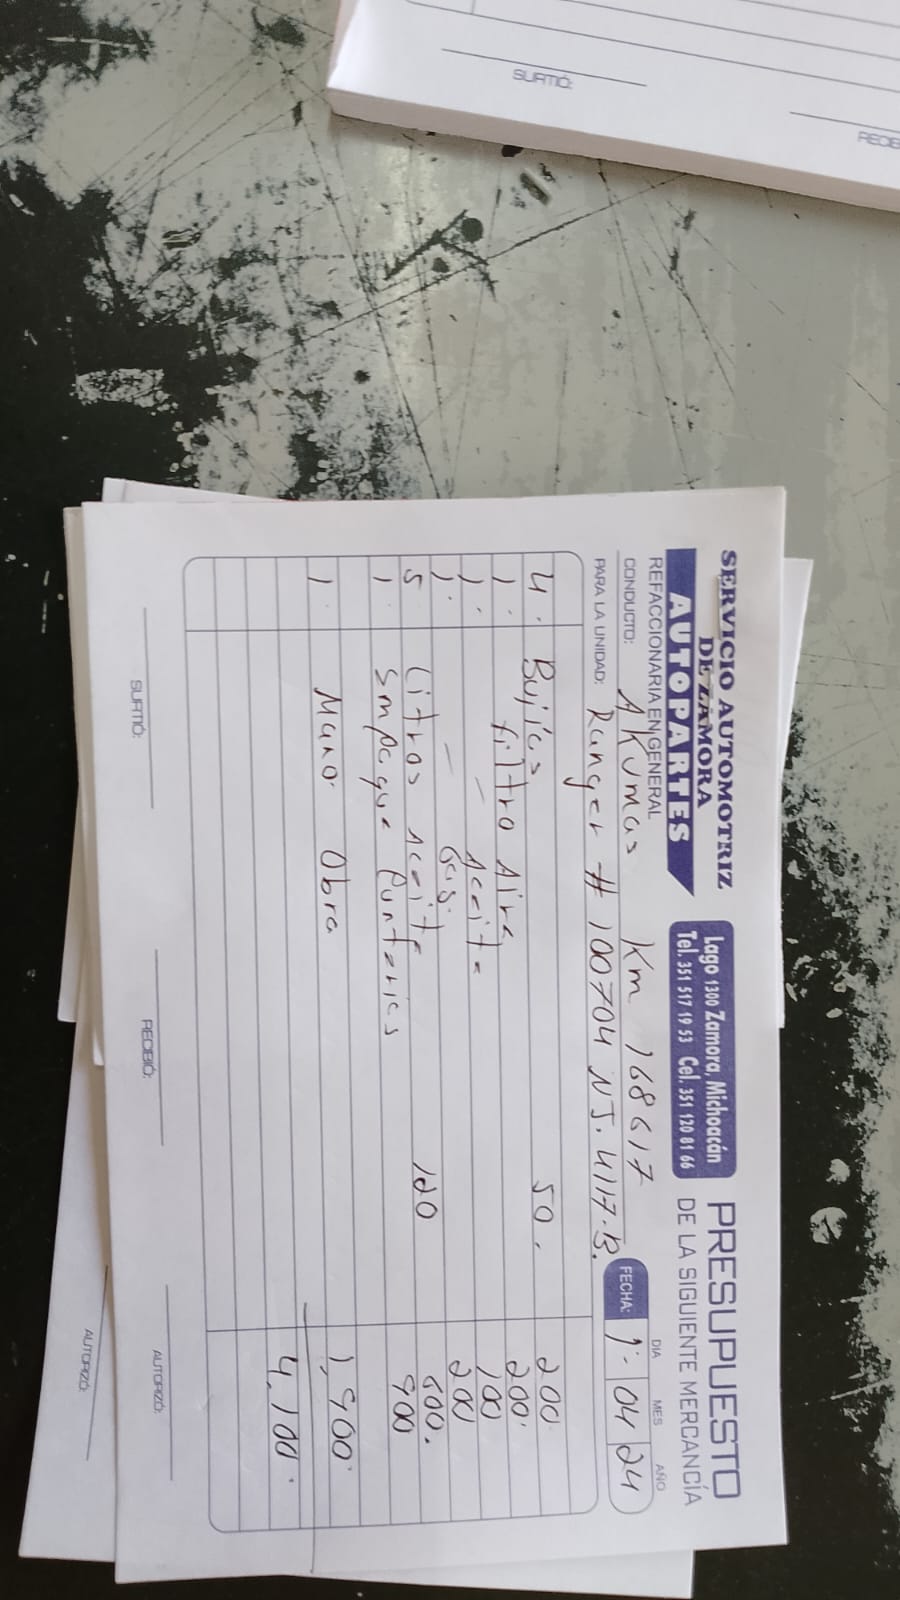 SURTIÓ:
RECIB
SERVICIO AUTOMOTRIZ
DE ZAMORA
AUTOPARTES
REFACCIONARIA EN GENERAL
Lago 1300 Zamora, Michoacán
Tel. 351 517 19 53 Cel. 351 120 81 66
PRESUPUESTO
DE LA SIGUIENTE MERCANCÍA
DIA MES AÑO
CONDUCTO: AKumas Km 168617
FECHA: 1- 04 24
PARA LA UNIDAD: Ranger # 100704 NJ. 4117.B.
4. Bujias 50. 200
1. filtro Aire 200.
1. — Aceite 100
1. — Gas. 200
5 Litros Aceite 120 600.
1 Empaque Punterias 900
1 Mano Obra 1,900.
4,100.
SURTIÓ: RECIBIÓ: AUTORIZÓ:
AUTORIZÓ: